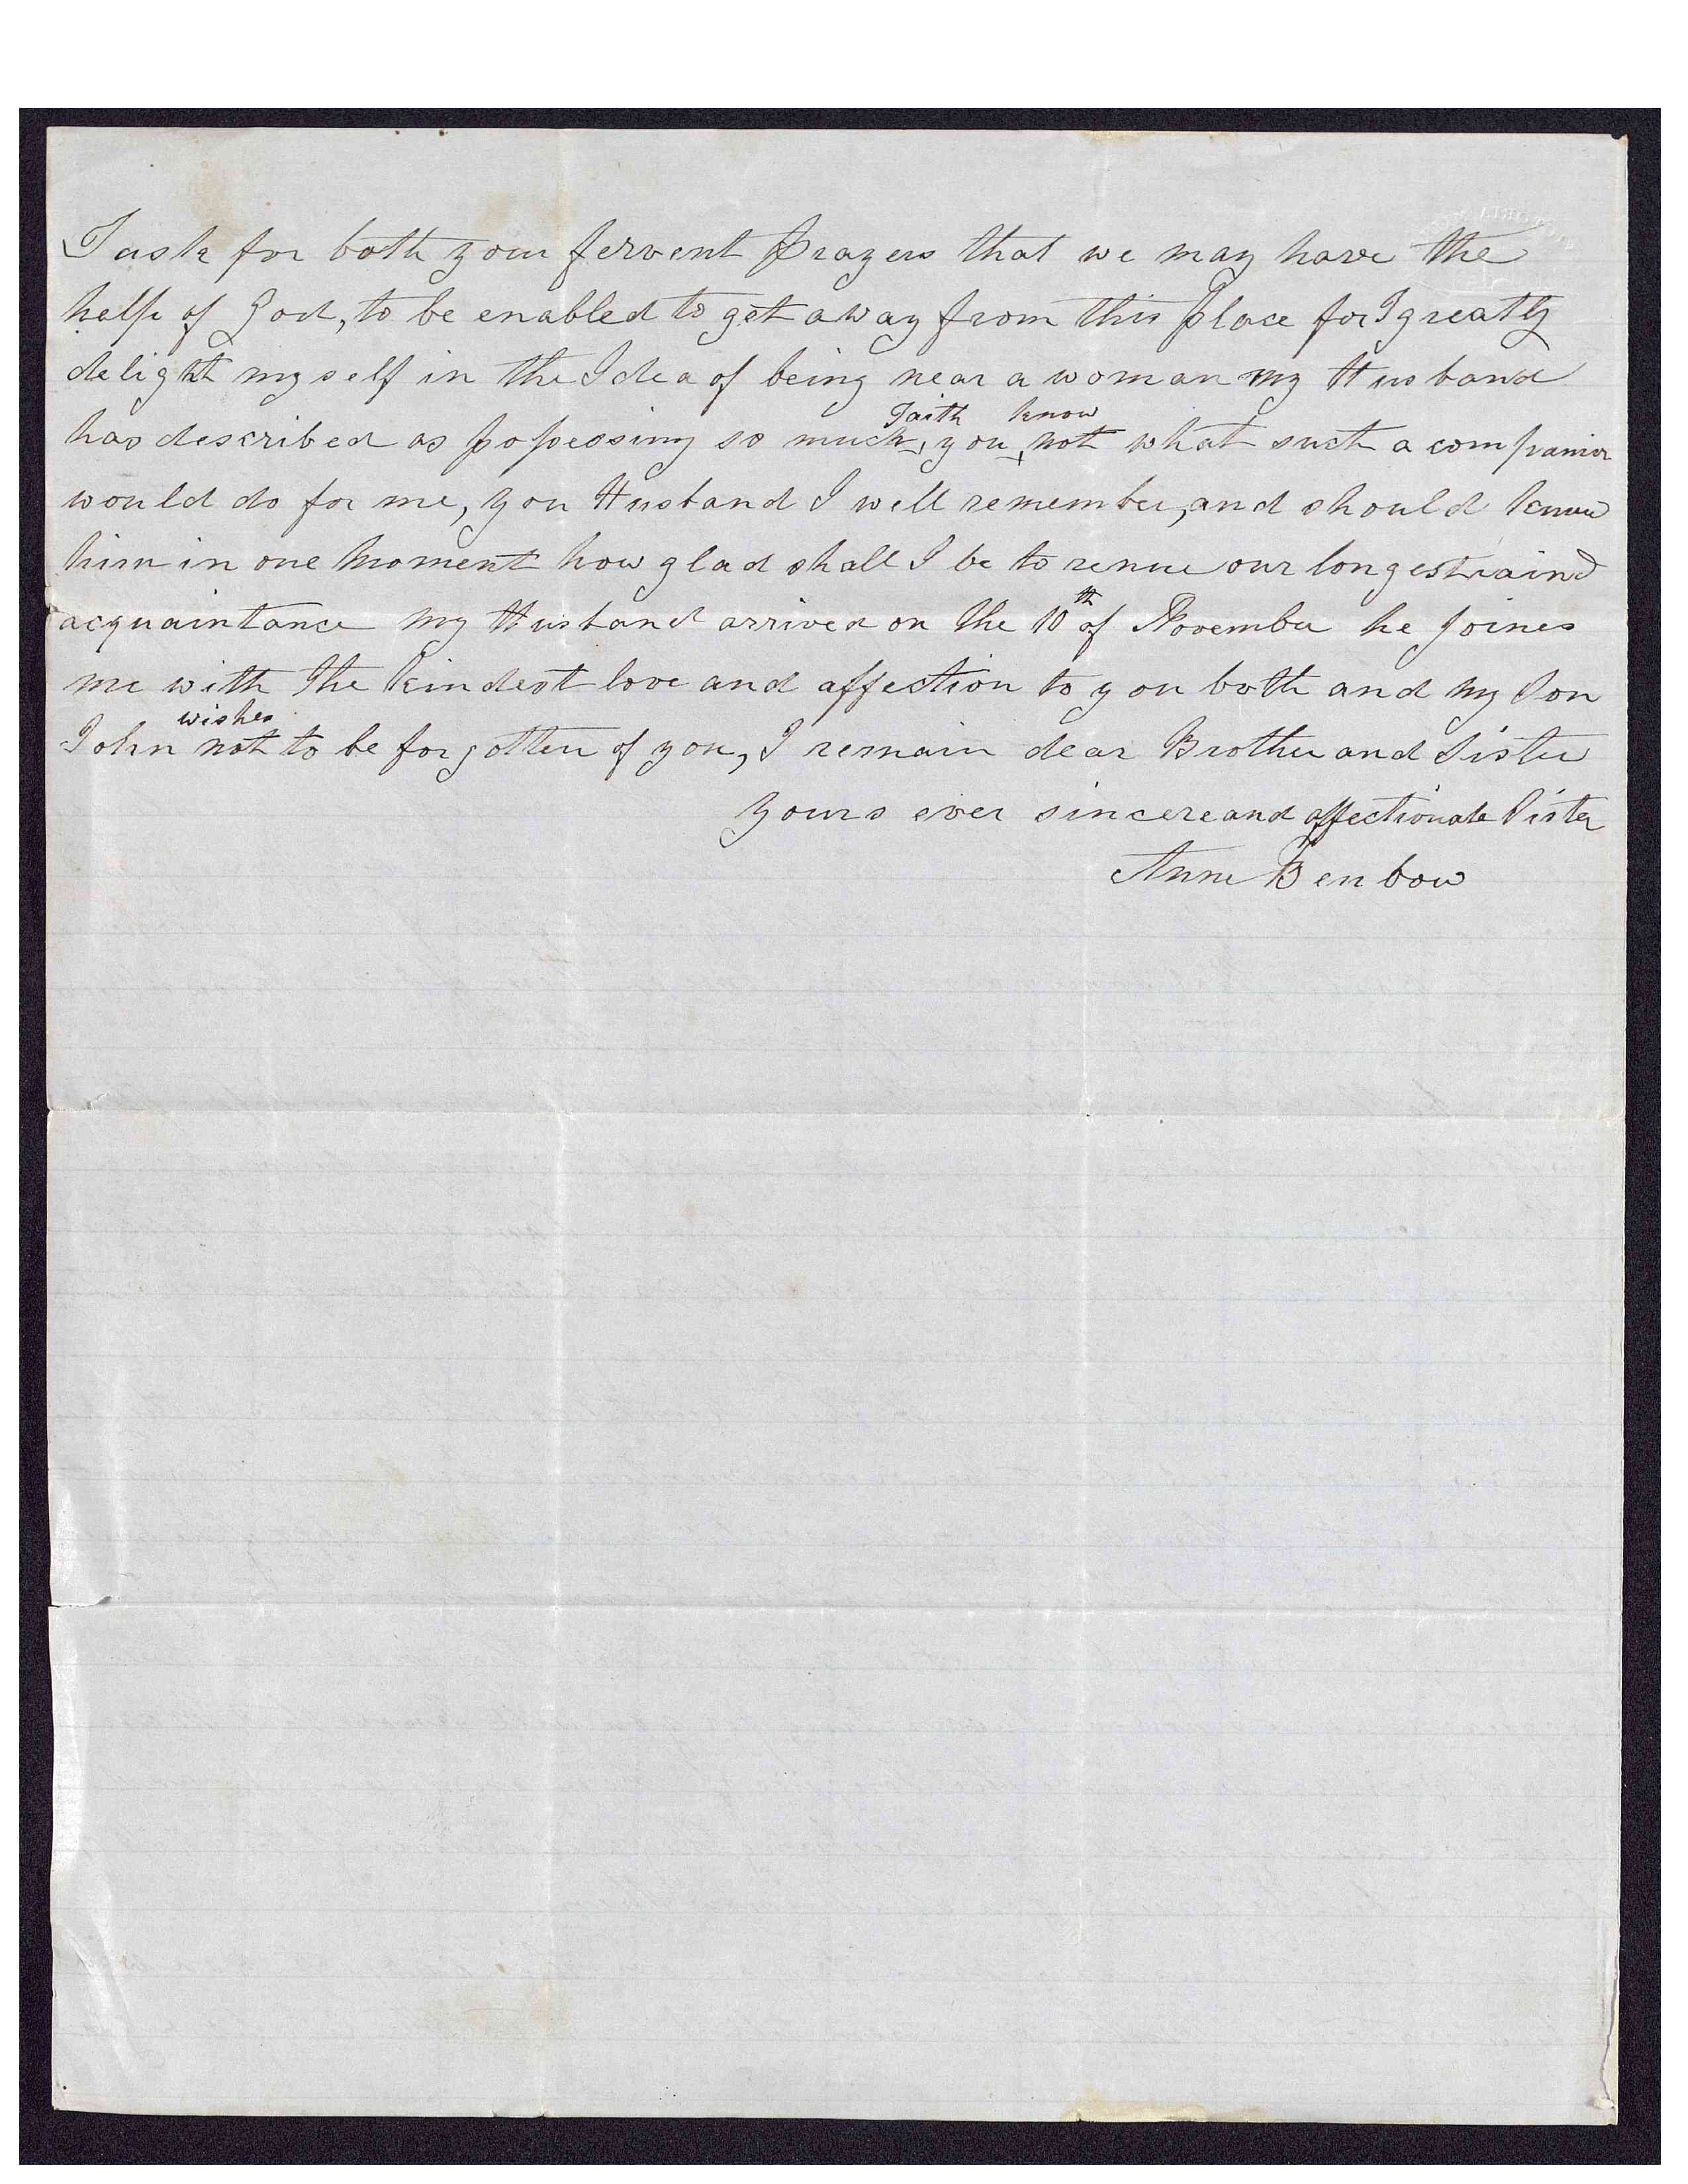 I ask for both your fervent prayers that we may have the
help of God, to be enabled to get away from this place for I greatly
delight myself in the Idea of being near a woman my Husband
has described as possessing so much Faith, you know not what such a companion
would do for me, you Husband I well remember, and should know
him in one moment how glad shall I be to renue our long estraind
acquaintance my Husband arrived on the 10th of November he joines
me with the kindest love and affection to you both and my Son
John wishes not to be forgotten of you, I remain dear Brother and Sister
yours ever sincere and affectionate Sister
Anne Benbow